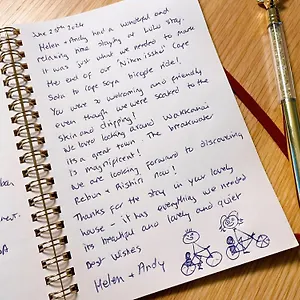 June 20th 2024
Helen + Andy had a wonderful and
relaxing time staying at Wako stay.
It was just what we needed to mark
the end of our 'Nihon isshu' Cape
Sata to Cape Soya bicycle ride!
You were so welcoming and friendly
even though we were soaked to the
skin and dripping!
We loved looking around Wakkanai
its a great town. The breakwater
is magnificent!
We are looking forward to discovering
Rebun + Rishiri now!
Thanks for the stay in your lovely
house - it has everything we needed
its beautiful and lovely and quiet
Best wishes
Helen + Andy